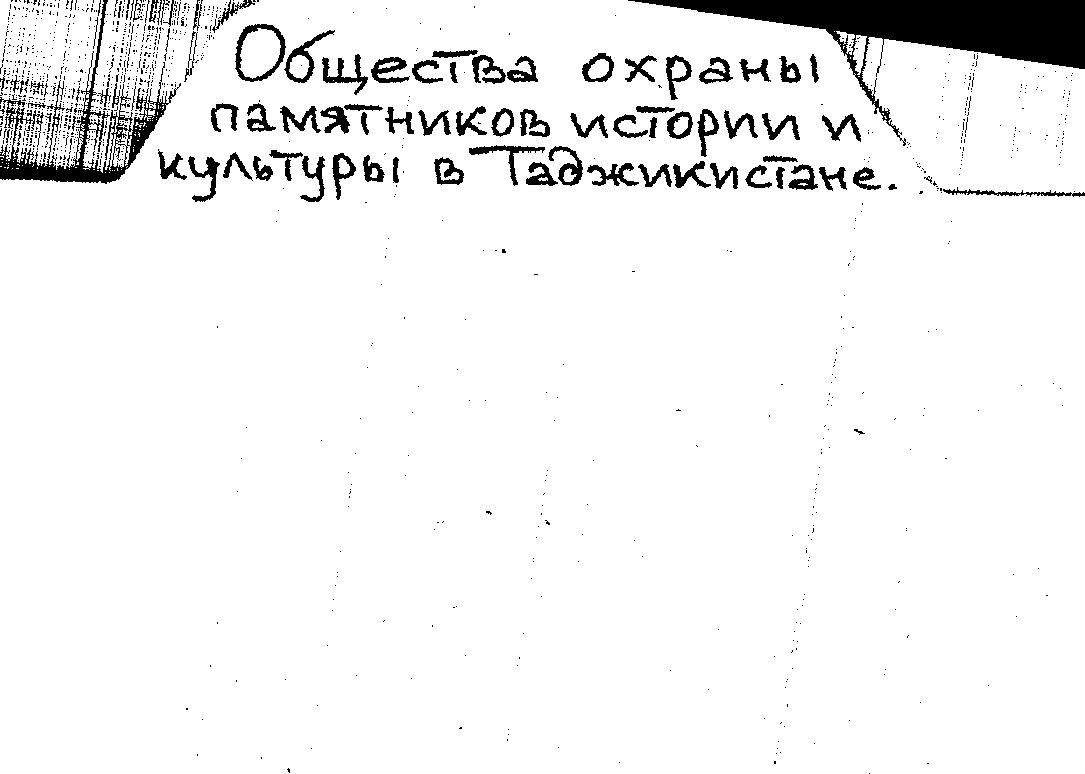 Общества охраны
памятников истории и
культуры в Таджикистане.